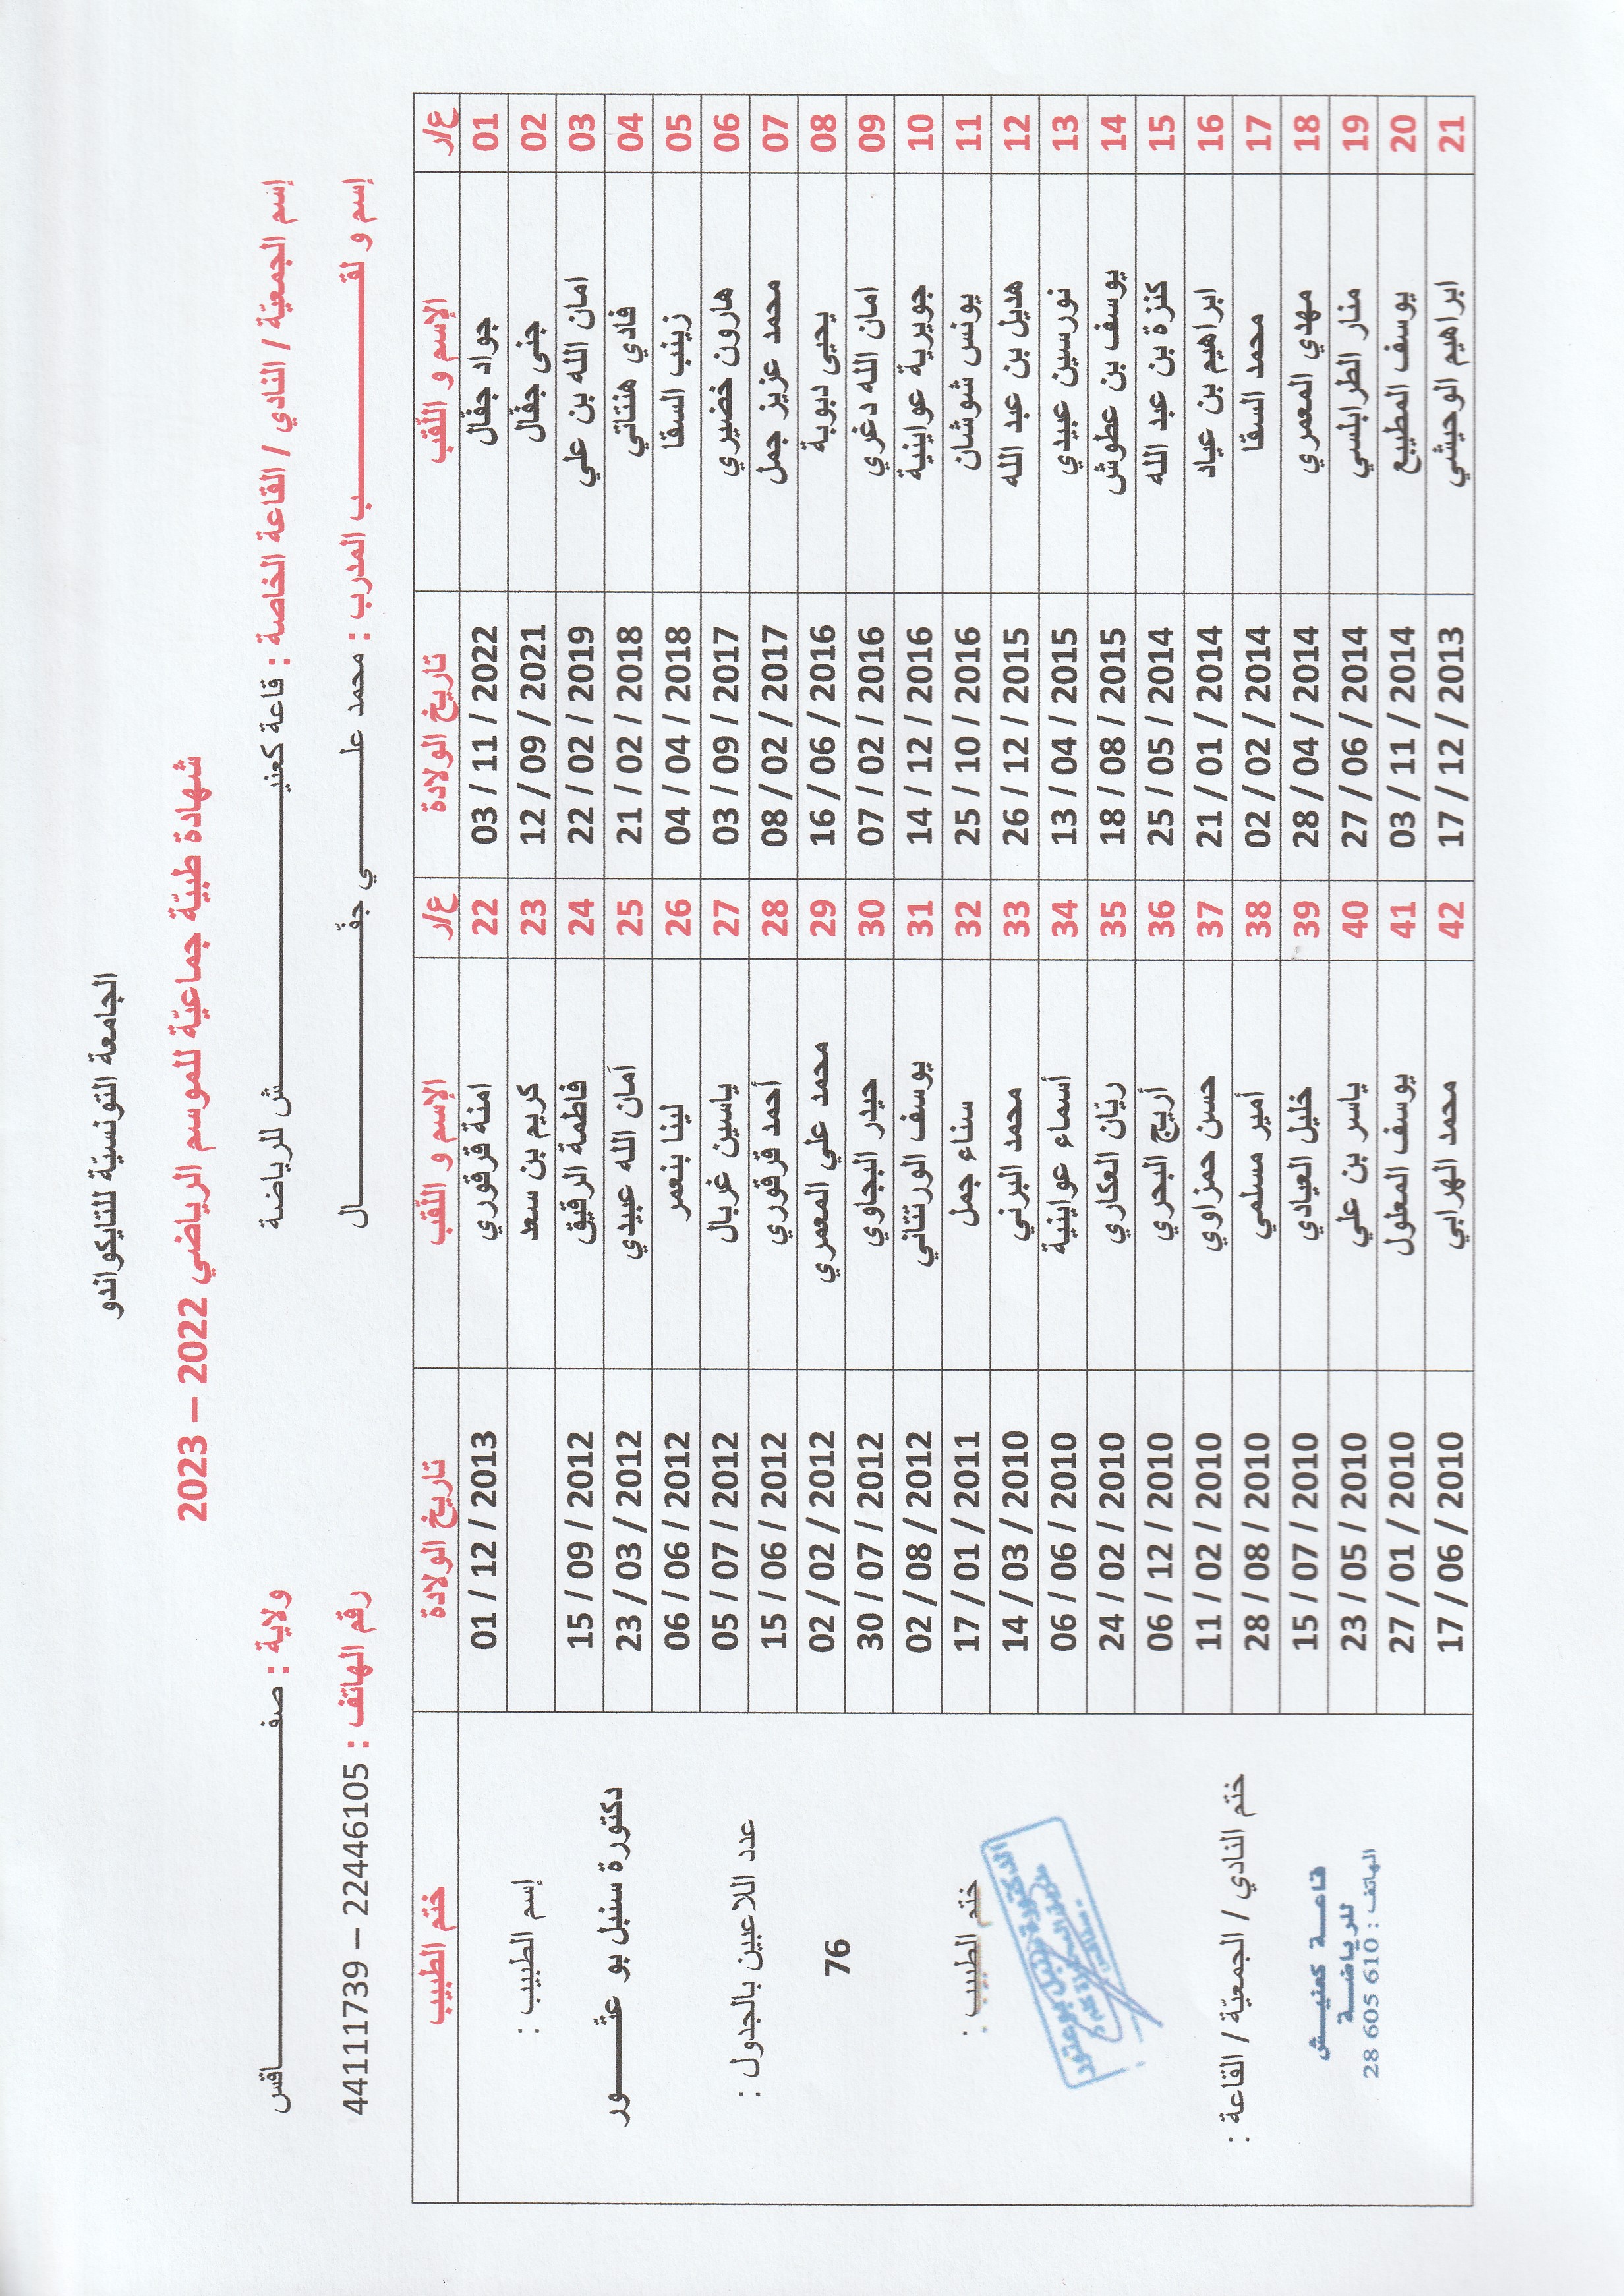 الجامعة التونسيّة للتايكواندو
شهادة طبيّة جماعيّة للموسم الرياضي 2022 – 2023
إسم الجمعيّة / النادي / القاعة الخاصة : قاعة كعنيـــــش للرياضة ولاية : صفـــــاقس
إسم و لقـــــب المدرب : محمد علـــــي جفّـــــال رقم الهاتف : 22446105 – 44111739
ع/ر الإسم و اللّقب تاريخ الولادة ع/ر الإسم و اللّقب تاريخ الولادة ختم الطبيب
01 جواد جفّال 03 / 11 / 2022 22 امنة قرقوري 01 / 12 / 2013
02 جنى جفّال 12 / 09 / 2021 23 كريم بن سعد
03 امان الله بن علي 22 / 02 / 2019 24 فاطمة الرقيق 15 / 09 / 2012
04 فادي هنتاتي 21 / 02 / 2018 25 أمان الله عبيدي 23 / 03 / 2012
05 زينب السقا 04 / 04 / 2018 26 لينا بنعمر 06 / 06 / 2012
06 هارون خضيري 03 / 09 / 2017 27 ياسين غربال 05 / 07 / 2012
07 محمد عزيز جمل 08 / 02 / 2017 28 أحمد قرقوري 15 / 06 / 2012
08 يحيى دبوبة 16 / 06 / 2016 29 محمد علي المعمري 02 / 02 / 2012
09 امان الله دغري 07 / 02 / 2016 30 حيدر البجاوي 30 / 07 / 2012
10 جويرية عواينية 14 / 12 / 2016 31 يوسف الورتتاني 02 / 08 / 2012
11 يونس شوشان 25 / 10 / 2016 32 سناء جمل 17 / 01 / 2011
12 هديل بن عبد الله 26 / 12 / 2015 33 محمد البرني 14 / 03 / 2010
13 نورسين عبيدي 13 / 04 / 2015 34 أسماء عواينية 06 / 06 / 2010
14 يوسف بن عطوش 18 / 08 / 2015 35 ريّان العكاري 24 / 02 / 2010
15 كنزة بن عبد الله 25 / 05 / 2014 36 أريج البحري 06 / 12 / 2010
16 ابراهيم بن عياد 21 / 01 / 2014 37 حسن حمزاوي 11 / 02 / 2010
17 محمد السقا 02 / 02 / 2014 38 أمير مسلمي 28 / 08 / 2010
18 مهدي المعمري 28 / 04 / 2014 39 خليل العيادي 15 / 07 / 2010
19 منار الطرابلسي 27 / 06 / 2014 40 ياسر بن علي 23 / 05 / 2010
20 يوسف المطيبع 03 / 11 / 2014 41 يوسف المعلول 27 / 01 / 2010
21 ابراهيم الوحيشي 17 / 12 / 2013 42 محمد الهرابي 17 / 06 / 2010
إسم الطبيب :
دكتورة سنبل بو عتّـــــور
عدد اللاعبين بالجدول :
76
ختم الطبيب :
الدكتورة سنبل بوعتور
ختم النادي / الجمعيّة / القاعة :
قاعـة كعنيـش
للرياضـة
الهاتف : 610 605 28